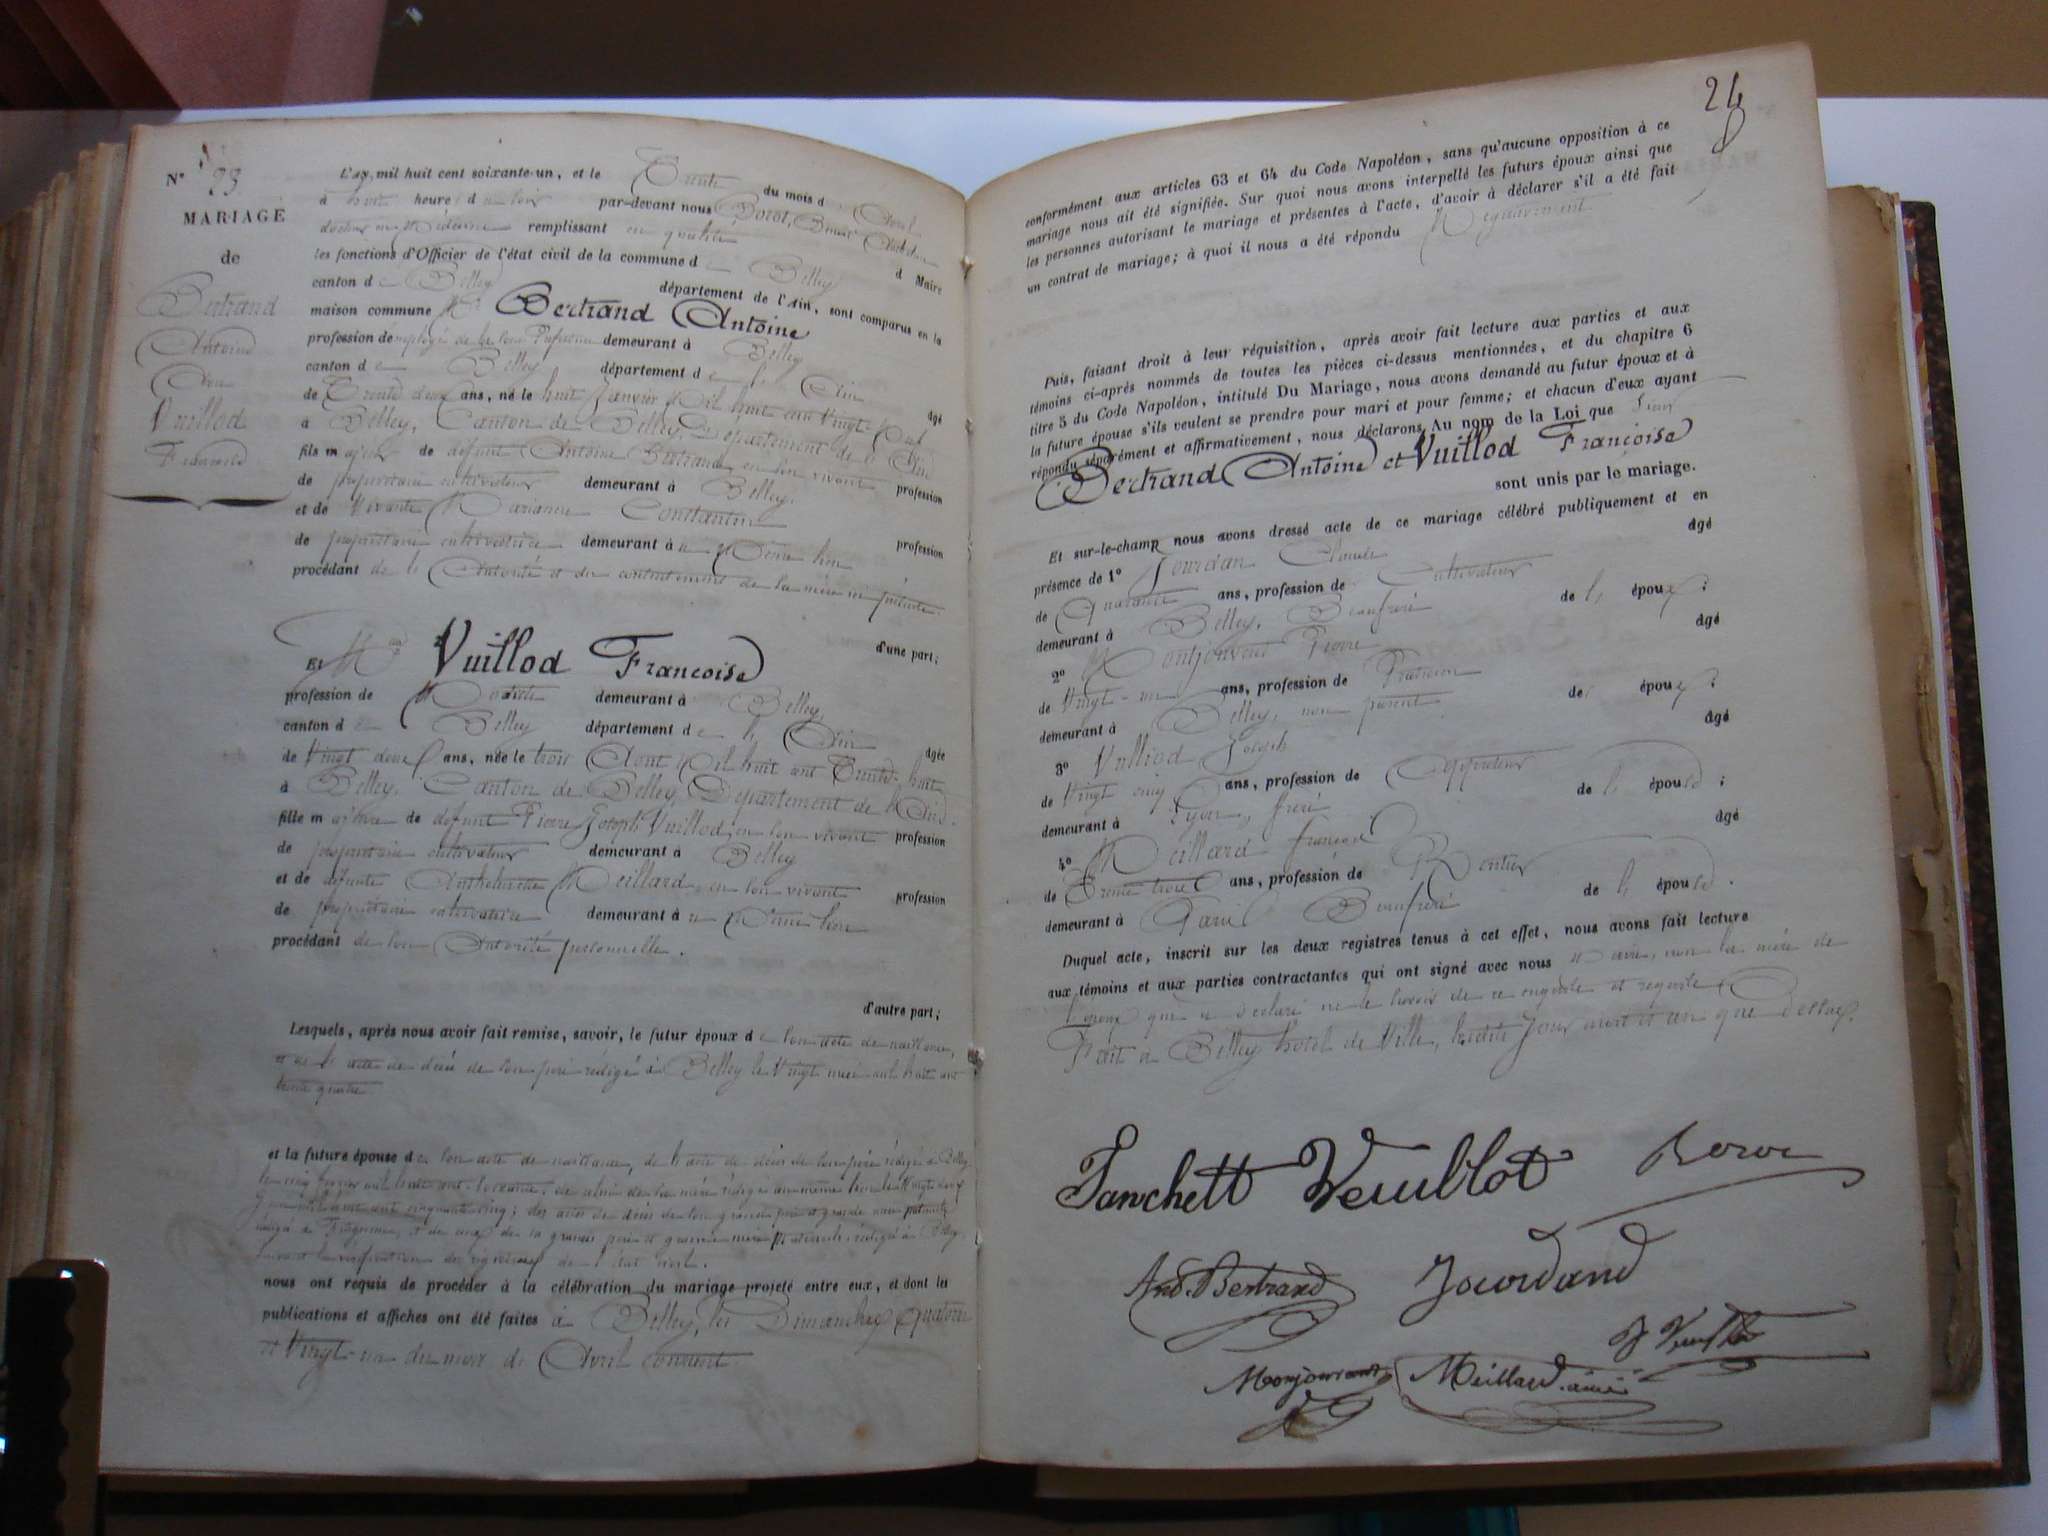 N° 23
MARIAGE
de
Bertrand
Antoine
Avec
Vuillod
Francoise
L'an mil huit cent soixante-un, et le Trente du mois d'Avril
à huit heures du soir par-devant nous Borot,
docteur en Médecine remplissant en qualité d Maire
les fonctions d'Officier de l'état civil de la commune de Belley
canton de Belley département de l'Ain, sont comparus en la
maison commune Mr Bertrand Antoine
profession de employé de la Sous Préfecture demeurant à Belley
canton de Belley département de l'Ain âgé
de Trente deux ans, né le huit Janvier Mil huit cent Vingt-neuf
à Belley, Canton de Belley, Département de l'Ain
fils majeur de défunt Antoine Bertrand, en son vivant profession
de propriétaire cultivateur demeurant à Belley.
et de vivante Marianne Constantin profession
de propriétaire cultivatrice demeurant à u Même lieu
procédant de l'Autorité et du consentement de sa mère ici présente.
d'une part;
Et Mlle Vuillod Francoise
profession de Modiste demeurant à Belley,
canton de Belley département de l'Ain âgée
de Vingt deux ans, née le trois Aout Mil huit cent Trente-huit
à Belley, Canton de Belley, Département de l'Ain.
fille majeure de défunt Pierre Joseph Vuillod, en son vivant profession
de propriétaire cultivateur demeurant à Belley
et de défunte Anthelmette Meillard, en son vivant profession
de propriétaire cultivatrice demeurant à u Même lieu
procédant de son Autorité personnelle.
d'autre part;
Lesquels, après nous avoir fait remise, savoir, le futur époux de son acte de naissance,
et de l'acte de décès de son père rédigé à Belley le Vingt mil huit cent
trente quatre
et la future épouse de son acte de naissance, de l'acte de décès de son père rédigé à Belley
le cinq mil huit cent soixante, de celui de sa mère rédigé au même lieu le Vingt deux
mil huit cent cinquante cinq; des actes de décès de son grand père et grande mère paternels
rédigé à et de ceux de sa grand père et grand mère Maternels rédigés à Belley
suivant la vérification des registres de l'état civil.
nous ont requis de procéder à la célébration du mariage projeté entre eux, et dont les
publications et affiches ont été faites à Belley, les Dimanches quatorze
et Vingt-un du mois d'Avril courant.
24
conformément aux articles 63 et 64 du Code Napoléon, sans qu'aucune opposition à ce
mariage nous ait été signifiée. Sur quoi nous avons interpellé les futurs époux ainsi que
les personnes autorisant le mariage et présentes à l'acte, d'avoir à déclarer s'il a été fait
un contrat de mariage; à quoi il nous a été répondu Négativement
Puis, faisant droit à leur réquisition, après avoir fait lecture aux parties et aux
témoins ci-après nommés de toutes les pièces ci-dessus mentionnées, et du chapitre 6
titre 5 du Code Napoléon, intitulé Du Mariage, nous avons demandé au futur époux et à
la future épouse s'ils veulent se prendre pour mari et pour femme; et chacun d'eux ayant
répondu séparément et affirmativement, nous déclarons Au nom de la Loi que Sieur
Bertrand Antoine et Vuillod Francoise
sont unis par le mariage.
Et sur-le-champ nous avons dressé acte de ce mariage célébré publiquement et en
présence de 1° Jourdan Claude âgé
de Quarante ans, profession de Cultivateur
demeurant à Belley, Beaufrère de l'époux;
2° Montjouvent Pierre âgé
de Vingt-un ans, profession de Praticien
demeurant à Belley, non parent de l'époux;
3° Vulliod Joseph âgé
de Vingt cinq ans, profession de
demeurant à Lyon, frère de l'épouse;
4° Meillard françois âgé
de Trente trois ans, profession de Rentier
demeurant à Paris Beaufrère de l'épouse.
Duquel acte, inscrit sur les deux registres tenus à cet effet, nous avons fait lecture
aux témoins et aux parties contractantes qui ont signé avec nous Maire, non la mère de
l'époux qui a déclaré ne le savoir de ce enquise et requise.
Fait à Belley hotel de Ville, lesdits Jour mois et an que dessus.
Fanchett Veuillot Borot
Ant. Bertrand Jourdand
J Veuillot
Monjouvent Meillard ainé